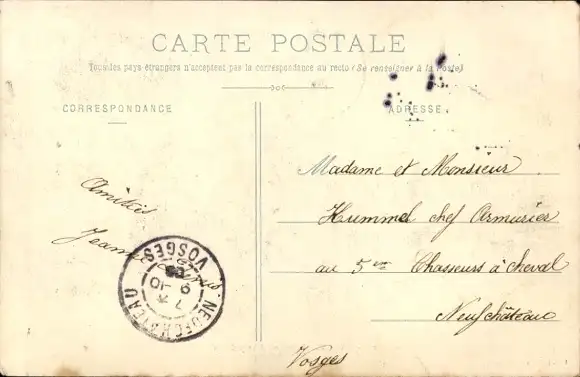 CARTE POSTALE
Tous les pays étrangers n'acceptent pas la correspondance au recto (Se renseigner à la Poste)
CORRESPONDANCE
ADRESSE
Amitiés
Jeanne
NEUFCHATEAU
VOSGES
Madame et Monsieur
Hummel chef Armurier
au 5em Chasseurs à cheval
Neufchâteau
Vosges